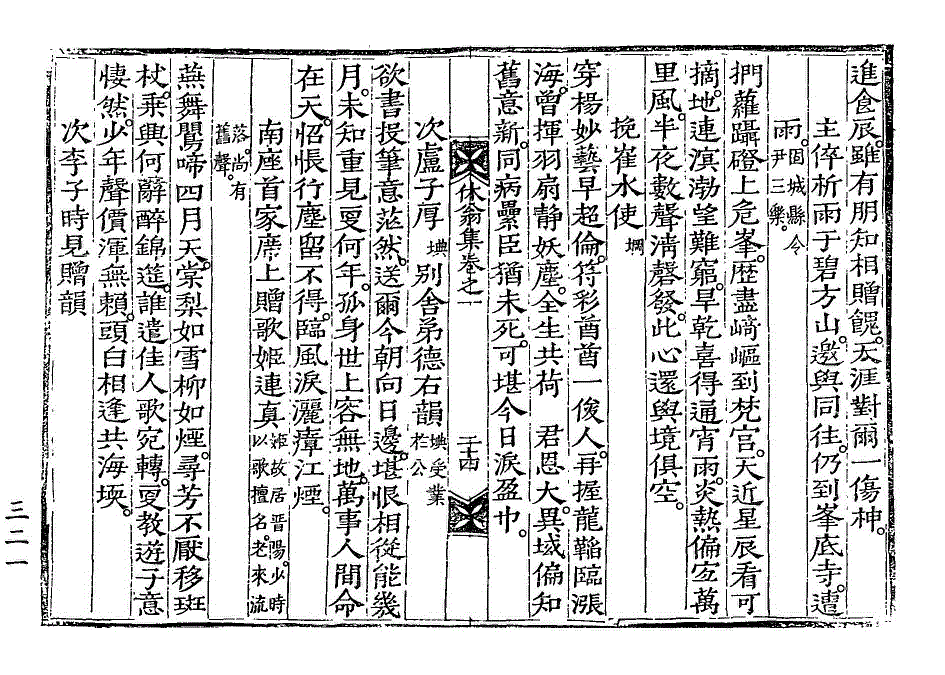 進食辰。雖有朋知相贈餽。天涯對爾一傷神。
主倅析雨于碧方山。邀與同往。仍到峯底寺。遭
雨。固城縣令尹三樂。
捫蘿躡磴上危峯。歷盡崎嶇到梵宫。天近星辰看可
摘。地連溟渤望難窮。旱乾喜得通宵雨。炎熱偏宜萬
里風。半夜數聲淸磬發。此心還與境俱空。
挽崔水使 堈
穿楊妙藝早超倫。符彩酋酋一俊人。再握龍韜臨漲
海。曾揮羽扇静妖塵。全生共荷 君恩大。異域偏知
舊意新。同病纍臣猶未死。可堪今日淚盈巾。
休翁集卷之一 二十四
次盧子厚 㙉 別舍弟德右韻 㙉受業於公
欲書投筆意茫然。送爾今朝向日邊。堪恨相從能幾
月。未知重見更何年。孤身世上容無地。萬事人間命
在天。怊悵行塵留不得。臨風淚灑瘴江煙。
南座首家席上贈歌姬連真 姬故居晋陽。少時以歌擅名。老來流
落。尚有舊聲。
燕舞鶯啼四月天。棠梨如雪柳如煙。尋芳不厭移斑
杖。乘興何辭醉錦筵。誰遣佳人歌宛轉。更教遊子意
悽然。少年聲價渾無賴。頭白相逢共海堧。
次李子時見贈韻
三二一